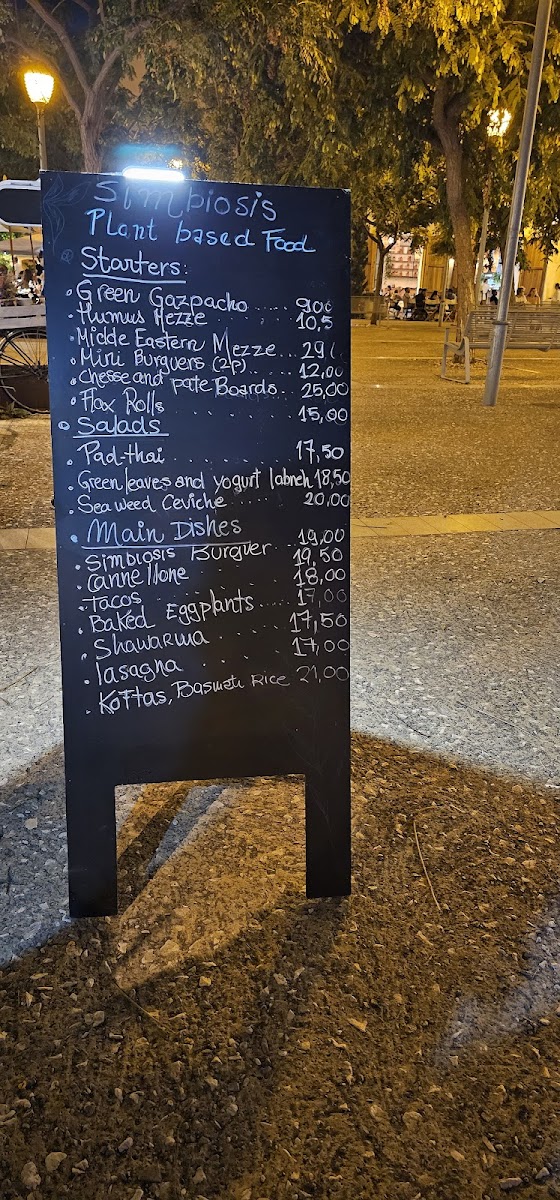 Simbiosis
Plant based Food
Starters:
Green Gazpacho ..... 900
Humus Mezze 10,5
Midde Eastern Mezze... 29
Mini Burguers (2p) .... 12,00
Chesse and pate Boards.. 25,00
Flax Rolls .... 15,00
Salads
Pad-thai ........ 17,50
Green leaves and yogurt labneh 18,50
Sea weed Ceviche ..... 20,00
Main Dishes
Simbiosis Burguer ... 19,00
Cannellone 19,50
Tacos ....... 18,00
Baked Eggplants .... 17,00
Shawarma ..... 17,50
lasagna ..... 17,00
Koftas, Basmati Rice 21,00